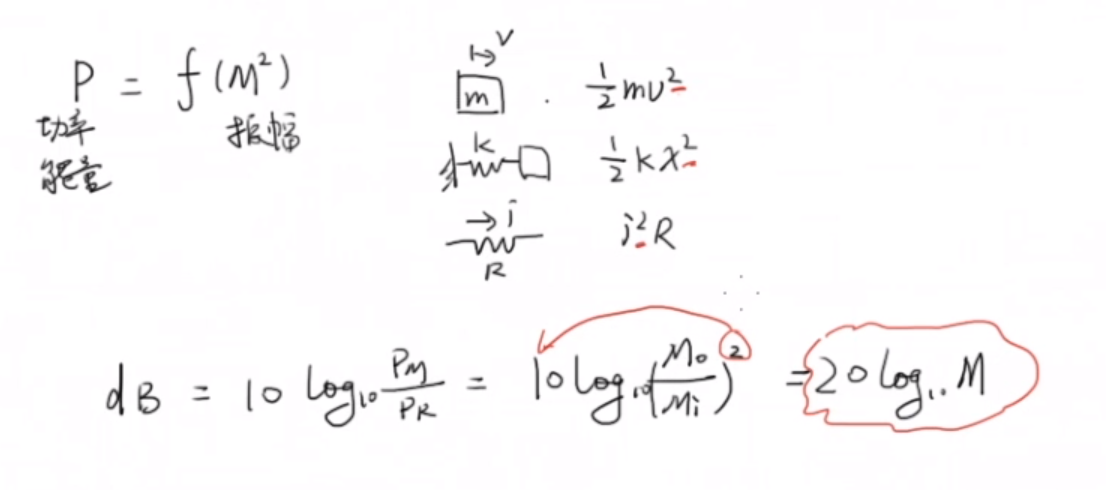 P = f(M²)
功率 振幅
能量
→ v
m . ½mv²
k ½kx²
→ i
R i²R
dB = 10 log₁₀ P_M/P_R = 10 log₁₀(M₀/Mᵢ)² = 20 log₁₀ M